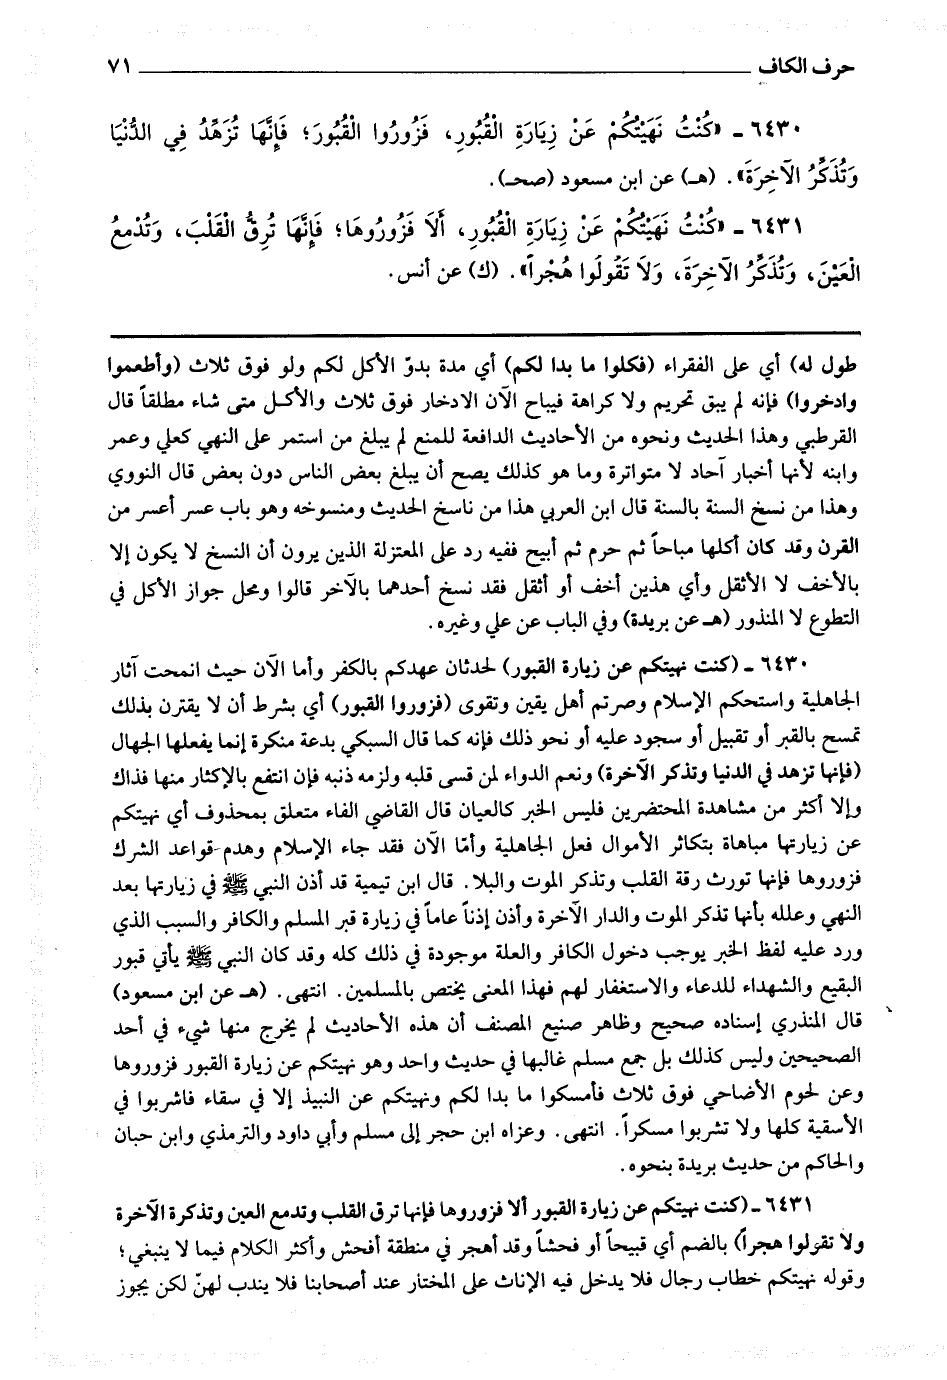 حرف الكاف ٧١
٦٤٣٠ ـ «كُنْتُ نَهَيْتُكُمْ عَنْ زِيَارَةِ الْقُبُورِ، فَزُورُوا الْقُبُورَ؛ فَإِنَّهَا تُزَهِّدُ فِي الدُّنْيَا
وَتُذَكِّرُ الآخِرَةَ». (هـ) عن ابن مسعود (صحـ).
٦٤٣١ ـ «كُنْتُ نَهَيْتُكُمْ عَنْ زِيَارَةِ الْقُبُورِ، أَلَا فَزُورُوهَا؛ فَإِنَّهَا تُرِقُّ الْقَلْبَ، وَتُدْمِعُ
الْعَيْنَ، وَتُذَكِّرُ الآخِرَةَ، وَلَا تَقُولُوا هُجْراً». (ك) عن أنس.
طول له) أي على الفقراء (فكلوا ما بدا لكم) أي مدة بدوّ الأكل لكم ولو فوق ثلاث (وأطعموا
وادخروا) فإنه لم يبق تحريم ولا كراهة فيباح الآن الادخار فوق ثلاث والأكل متى شاء مطلقاً قال
القرطبي وهذا الحديث ونحوه من الأحاديث الدافعة للمنع لم يبلغ من استمر على النهي كعلي وعمر
وابنه لأنها أخبار آحاد لا متواترة وما هو كذلك يصح أن يبلغ بعض الناس دون بعض قال النووي
وهذا من نسخ السنة بالسنة قال ابن العربي هذا من ناسخ الحديث ومنسوخه وهو باب عسر أعسر من
القرن وقد كان أكلها مباحاً ثم حرم ثم أبيح ففيه رد على المعتزلة الذين يرون أن النسخ لا يكون إلا
بالأخف لا الأثقل وأي هذين أخف أو أثقل فقد نسخ أحدهما بالآخر قالوا ومحل جواز الأكل في
التطوع لا المنذور (هـ عن بريدة) وفي الباب عن علي وغيره.
٦٤٣٠ ـ (كنت نهيتكم عن زيارة القبور) لحدثان عهدكم بالكفر وأما الآن حيث انمحت آثار
الجاهلية واستحكم الإسلام وصرتم أهل يقين وتقوى (فزوروا القبور) أي بشرط أن لا يقترن بذلك
تمسح بالقبر أو تقبيل أو سجود عليه أو نحو ذلك فإنه كما قال السبكي بدعة منكرة إنما يفعلها الجهال
(فإنها تزهد في الدنيا وتذكر الآخرة) ونعم الدواء لمن قسى قلبه ولزمه ذنبه فإن انتفع بالإكثار منها فذاك
وإلا أكثر من مشاهدة المحتضرين فليس الخبر كالعيان قال القاضي الفاء متعلق بمحذوف أي نهيتكم
عن زيارتها مباهاة بتكاثر الأموال فعل الجاهلية وأمّا الآن فقد جاء الإسلام وهدم قواعد الشرك
فزوروها فإنها تورث رقة القلب وتذكر الموت والبلا. قال ابن تيمية قد أذن النبي ﷺ في زيارتها بعد
النهي وعلله بأنها تذكر الموت والدار الآخرة وأذن إذناً عاماً في زيارة قبر المسلم والكافر والسبب الذي
ورد عليه لفظ الخبر يوجب دخول الكافر والعلة موجودة في ذلك كله وقد كان النبي ﷺ يأتي قبور
البقيع والشهداء للدعاء والاستغفار لهم فهذا المعنى يختص بالمسلمين. انتهى. (هـ عن ابن مسعود)
قال المنذري إسناده صحيح وظاهر صنيع المصنف أن هذه الأحاديث لم يخرج منها شيء في أحد
الصحيحين وليس كذلك بل جمع مسلم غالبها في حديث واحد وهو نهيتكم عن زيارة القبور فزوروها
وعن لحوم الأضاحي فوق ثلاث فأمسكوا ما بدا لكم ونهيتكم عن النبيذ إلا في سقاء فاشربوا في
الأسقية كلها ولا تشربوا مسكراً. انتهى. وعزاه ابن حجر إلى مسلم وأبي داود والترمذي وابن حبان
والحاكم من حديث بريدة بنحوه.
٦٤٣١ ـ (كنت نهيتكم عن زيارة القبور ألا فزوروها فإنها ترق القلب وتدمع العين وتذكرة الآخرة
ولا تقولوا هجراً) بالضم أي قبيحاً أو فحشاً وقد أهجر في منطقة أفحش وأكثر الكلام فيما لا ينبغي؛
وقوله نهيتكم خطاب رجال فلا يدخل فيه الإناث على المختار عند أصحابنا فلا يندب لهنّ لكن يجوز